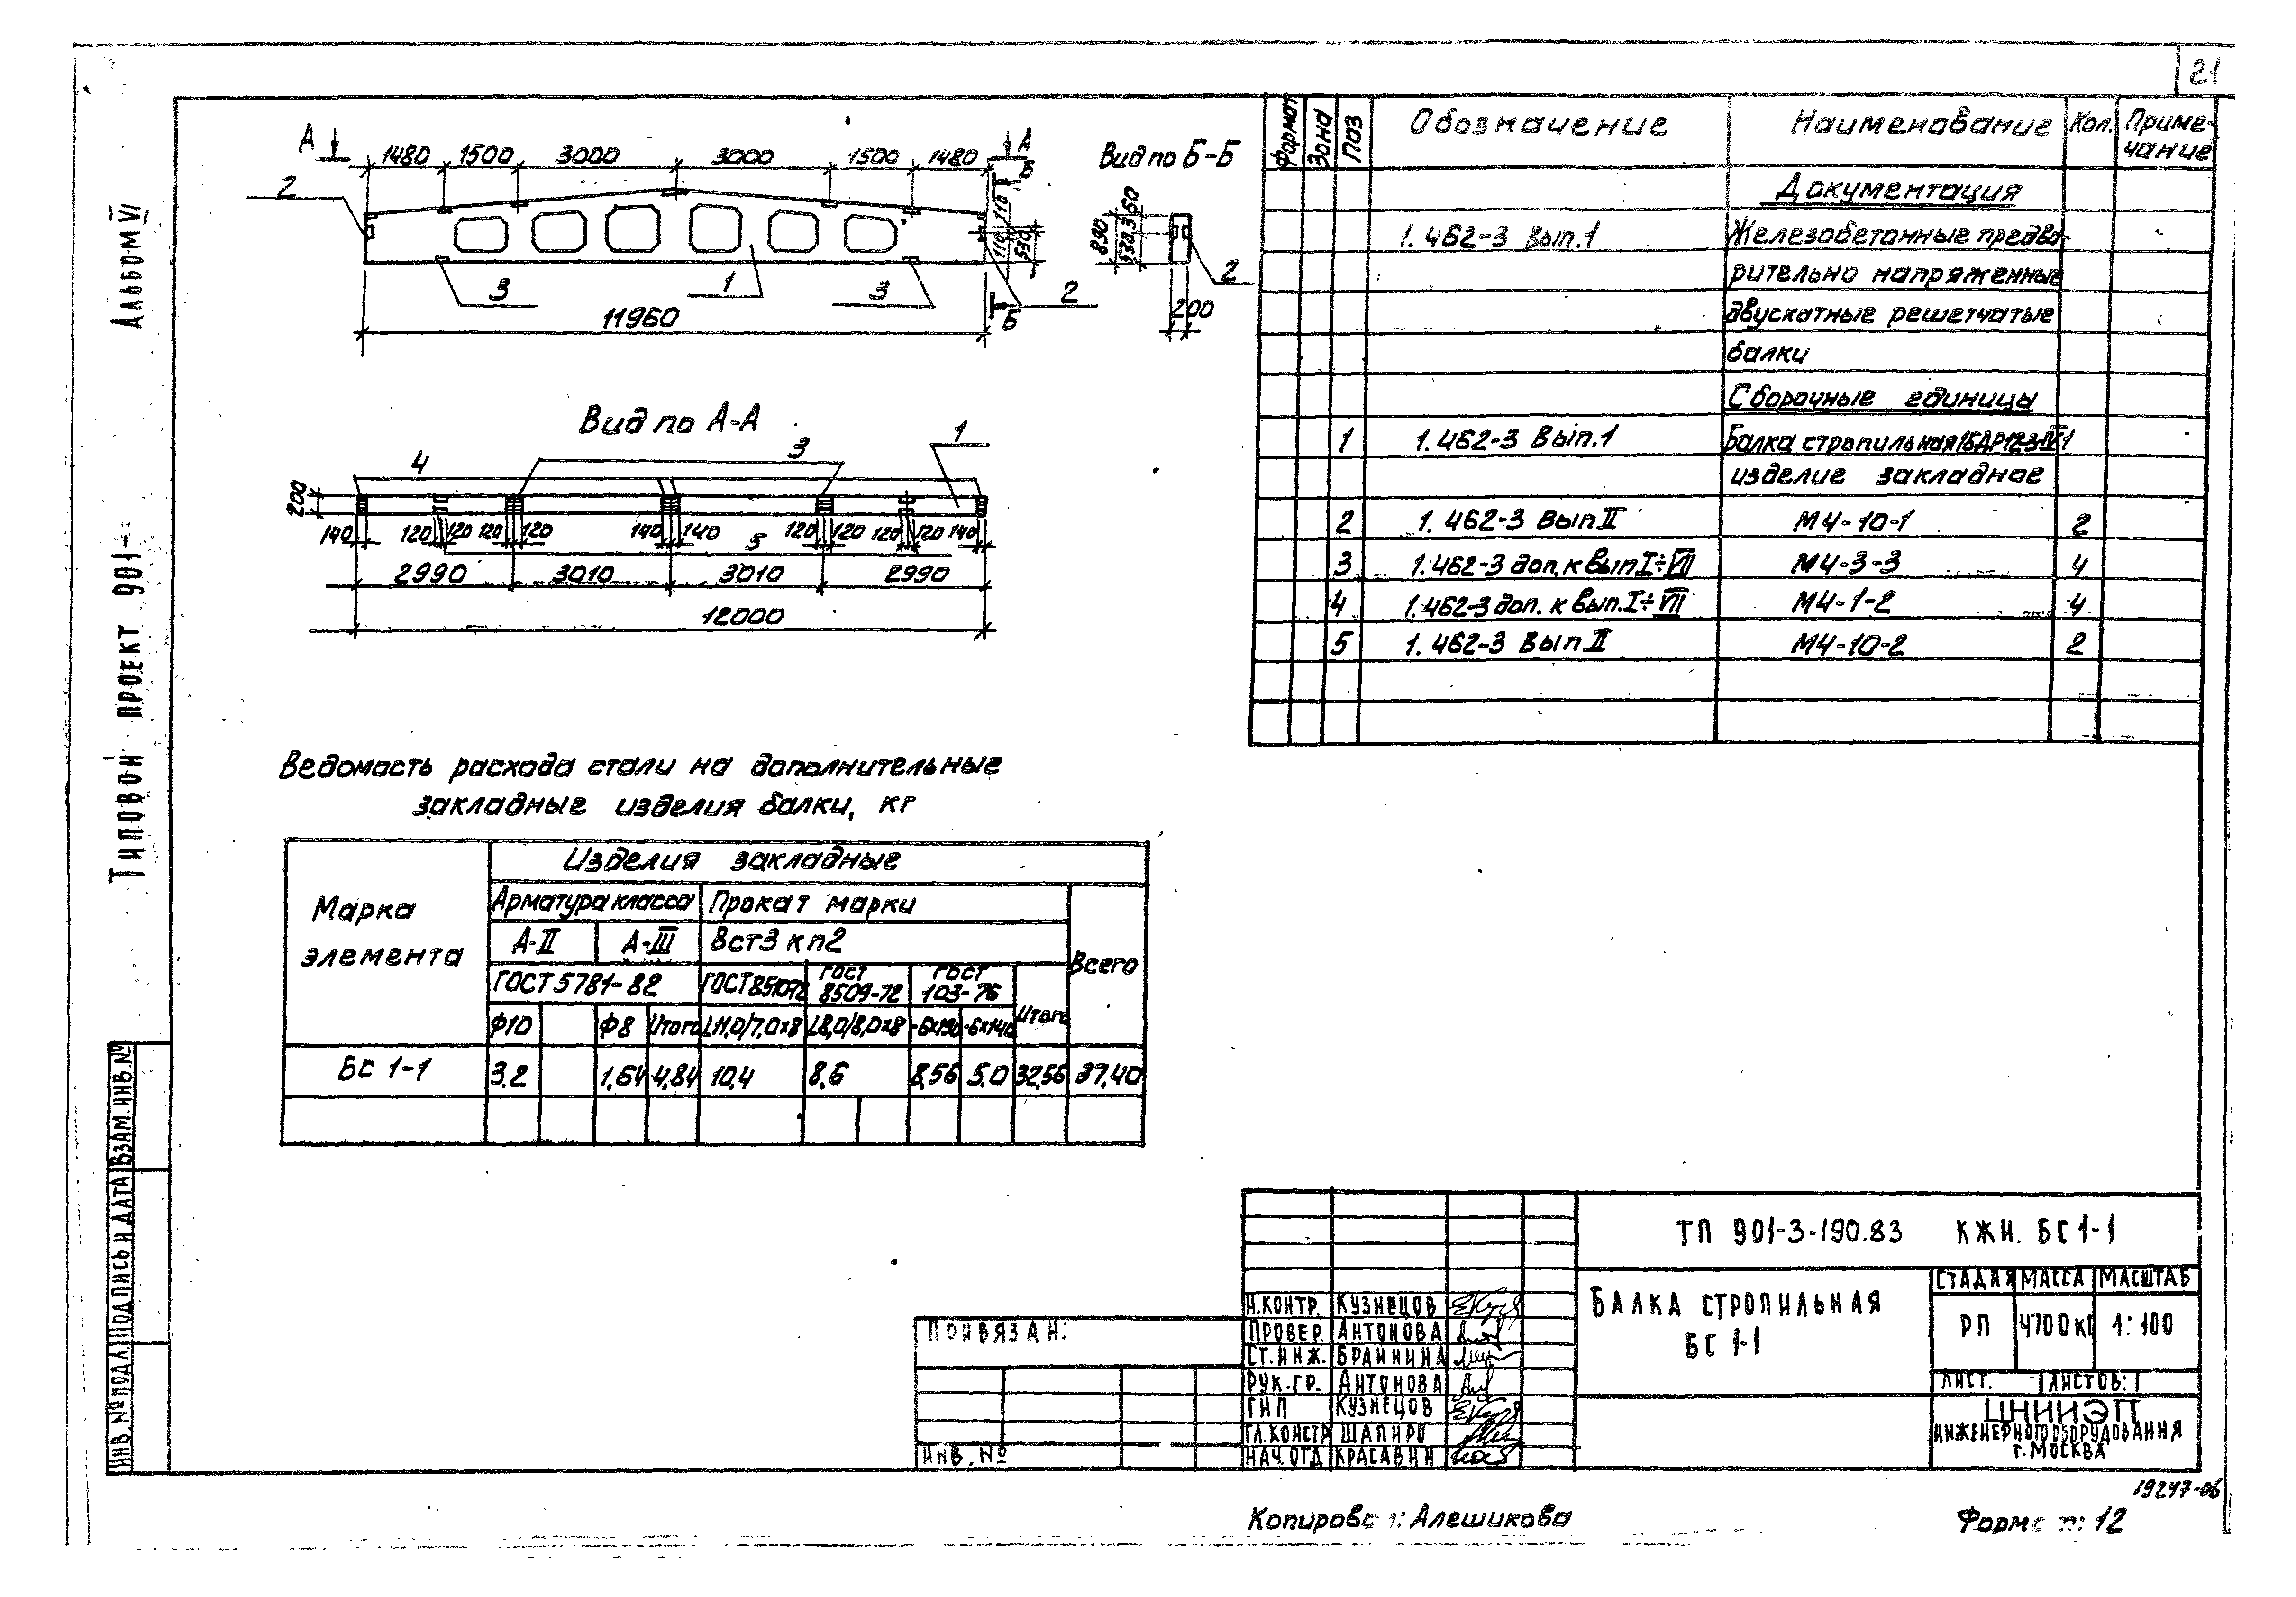 21
Альбом VI
Типовой проект 901-
Инв. № подл. Подпись и дата Взам. инв. №
А А
Б
1480 1500 3000 3000 1500 1480
2
110
110
530
3 1 3 2
Б
11960
Вид по Б-Б
890
2
200
Вид по А-А
4 3 1
200
140 120 120 120 120 140 140 120 120 120 120 140
5
2990 3010 3010 2990
12000
Формат Зона Поз Обозначение Наименование Кол. Приме-
чание
Документация
1.462-3 Вып.1 Железобетонные предва-
рительно напряженные
двускатные решетчатые
балки
Сборочные единицы
1 1.462-3 Вып.1 Балка стропильная
изделие закладное
2 1.462-3 Вып II М4-10-1 2
3 1.462-3 доп. к вып I÷VII М4-3-3 4
4 1.462-3 доп. к вып. I÷VII М4-1-2 4
5 1.462-3 Вып II М4-10-2 2
Ведомость расхода стали на дополнительные
закладные изделия балки, кг
Марка
элемента
Изделия закладные
Арматура класса Прокат марки
Всего
А-II А-III Вст3 кп2
ГОСТ 5781-82 ГОСТ 8510-72 ГОСТ 8509-72 ГОСТ 103-76 Итого
Ф10 Ф8 Итого L11,0/7,0x8 L8,0/8,0x8 -6x190 -6x140
БС 1-1 3,2 1,64 4,84 10,4 8,6 8,56 5.0 32,56 37,40
ТП 901-3-190.83 КЖИ. БС 1-1
Балка стропильная
БС 1-1
Стадия Масса Масштаб
РП 4700кг 1:100
Лист. Листов: 1
ЦНИИЭП
инженерного оборудования
г. Москва
Н.контр. Кузнецов
Провер. Антонова
Ст.инж. Брайнина
Рук.гр. Антонова
ГИП Кузнецов
Гл.констр Шапиро
Нач.отд Красавин
Привязан:
Инв. №
19247-06
Копировал: Алешикова
Формат: 12